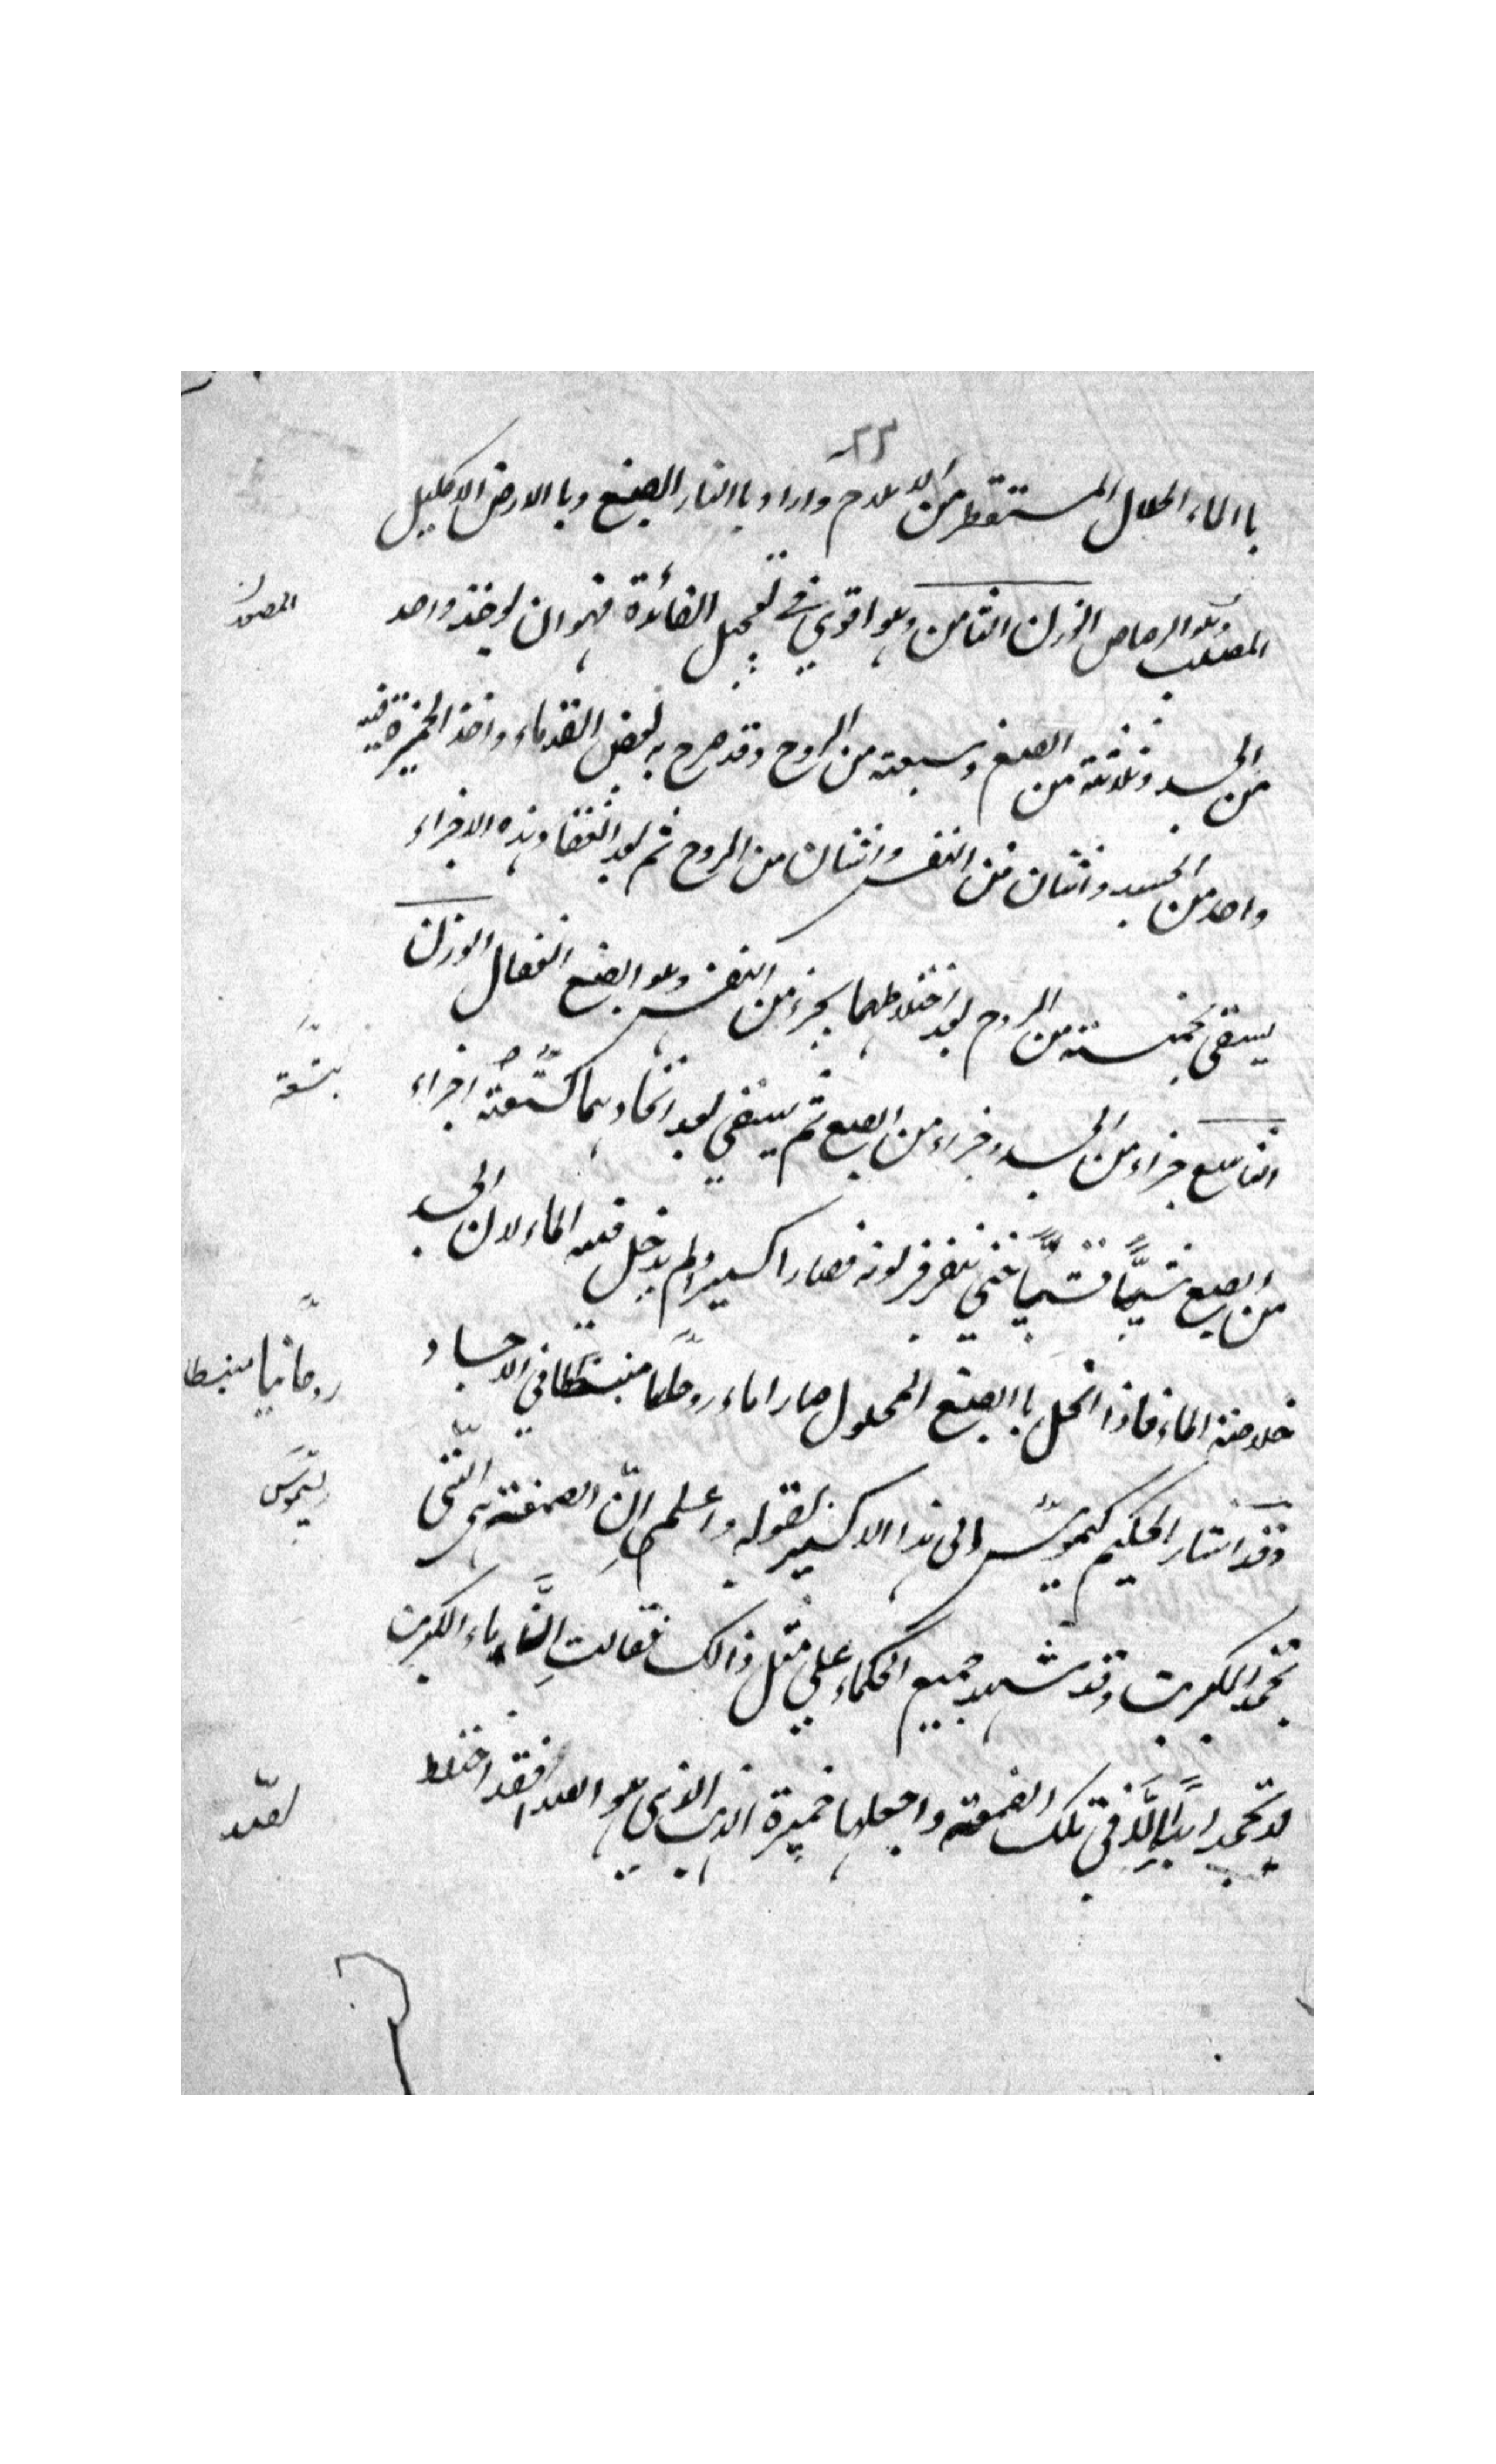 ٢٣
باالماء الحلال المستقطر من الاعلاج واراد باالنار الصبغ وباالارض الاكليل
المصلب وهو الرصاص الوزن الثامن وهو اقوي في تعجيل الفائدة فهو ان يوخذ واحد
من الجسد وثلاثة من الصبغ وسبعته من الروح وقد صرح به بعض القدماء واخذ الخميرة فيه
واحد من الجسد واثنان من النفس واثنان من الروح ثم بعد انعقاد هذه الاجزاء
يسقى بخمسته من الروح بعد اختلاطهما بجزء من النفس وهو الصبغ الفعال الوزن
التاسع جزاء من الجسد وجزاء من الصبغ ثم يسقي بعد اتحادهما كتسعته اجزاء
من الصبغ شيًا فشيًا حتى يتفرفر لونه فصار اكسيرا ولم يدخل فيه الماء لان الجسد
خلاصته الماء فاذا انحل باالصبغ المحلول صارا ماء روحانيا منبسطا في الاجساد
وقد اشار الحكيم كيموس الى هذا الاكسير بقوله واعلم انّ الصمغته هي التي
تجمد الكبريت وقد شهد جميع الحكماء علي مثل ذالك فقالت ماء الكبريت
لا تجمد ابدًا الّا في تلك الصمغته واجعلها خميرة الذهب الذي هو الغذا فقد اختلط
بتسعة
روحانيا منبسطا
ريسموس